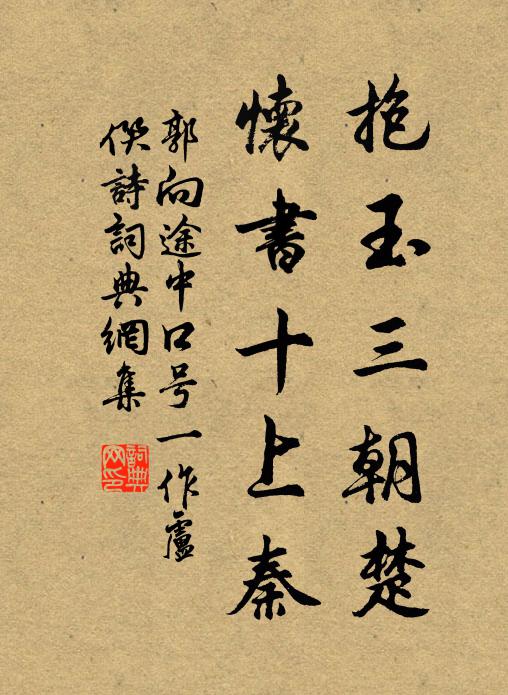 抱玉三朝楚
懷書十上秦
郭向途中口号一作盧
僎詩詞典網集
詞典
网印